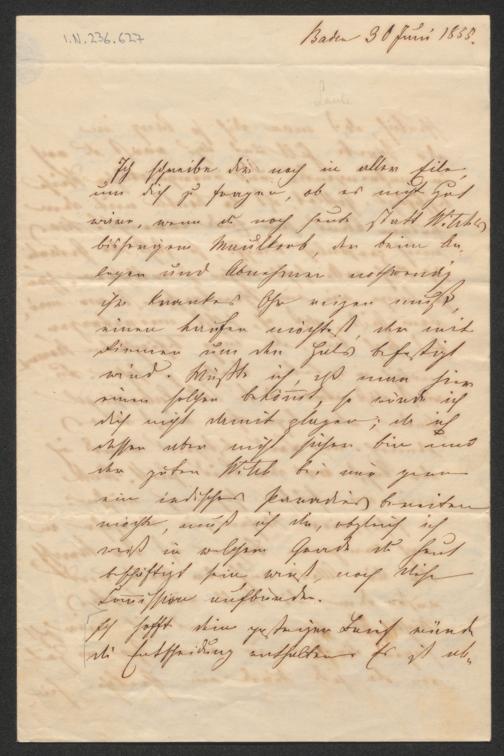 I.N. 236.627
Baden 30 Juni 1855.
Laube
Ich schreibe dir noch in aller Eile,
um dich zu fragen, ob es nicht gut
wäre, wenn du noch heute statt
bisherigem Maulkorb, der beim An-
legen und Abnehmen nothwendig
ihr krankes Ohr reizen muß,
einen kaufen möchtest, der mit
Riemen um den Hals befestigt
wird. Wüßte ich, daß man hier
einen solchen bekömt, so würde ich
dich nicht damit plagen; da ich
dessen aber nicht sicher bin und
der guten bei mir gern
ein indisches Paradies bereiten
möchte, muß ich dir, obgleich ich
weiß in welchem Grade du heut
beschäftigt sein wirst, noch diese
Comission aufbürden.
Ich hoffte dein gestriger Brief würde
die Entscheidung enthalten. Es ist ab-